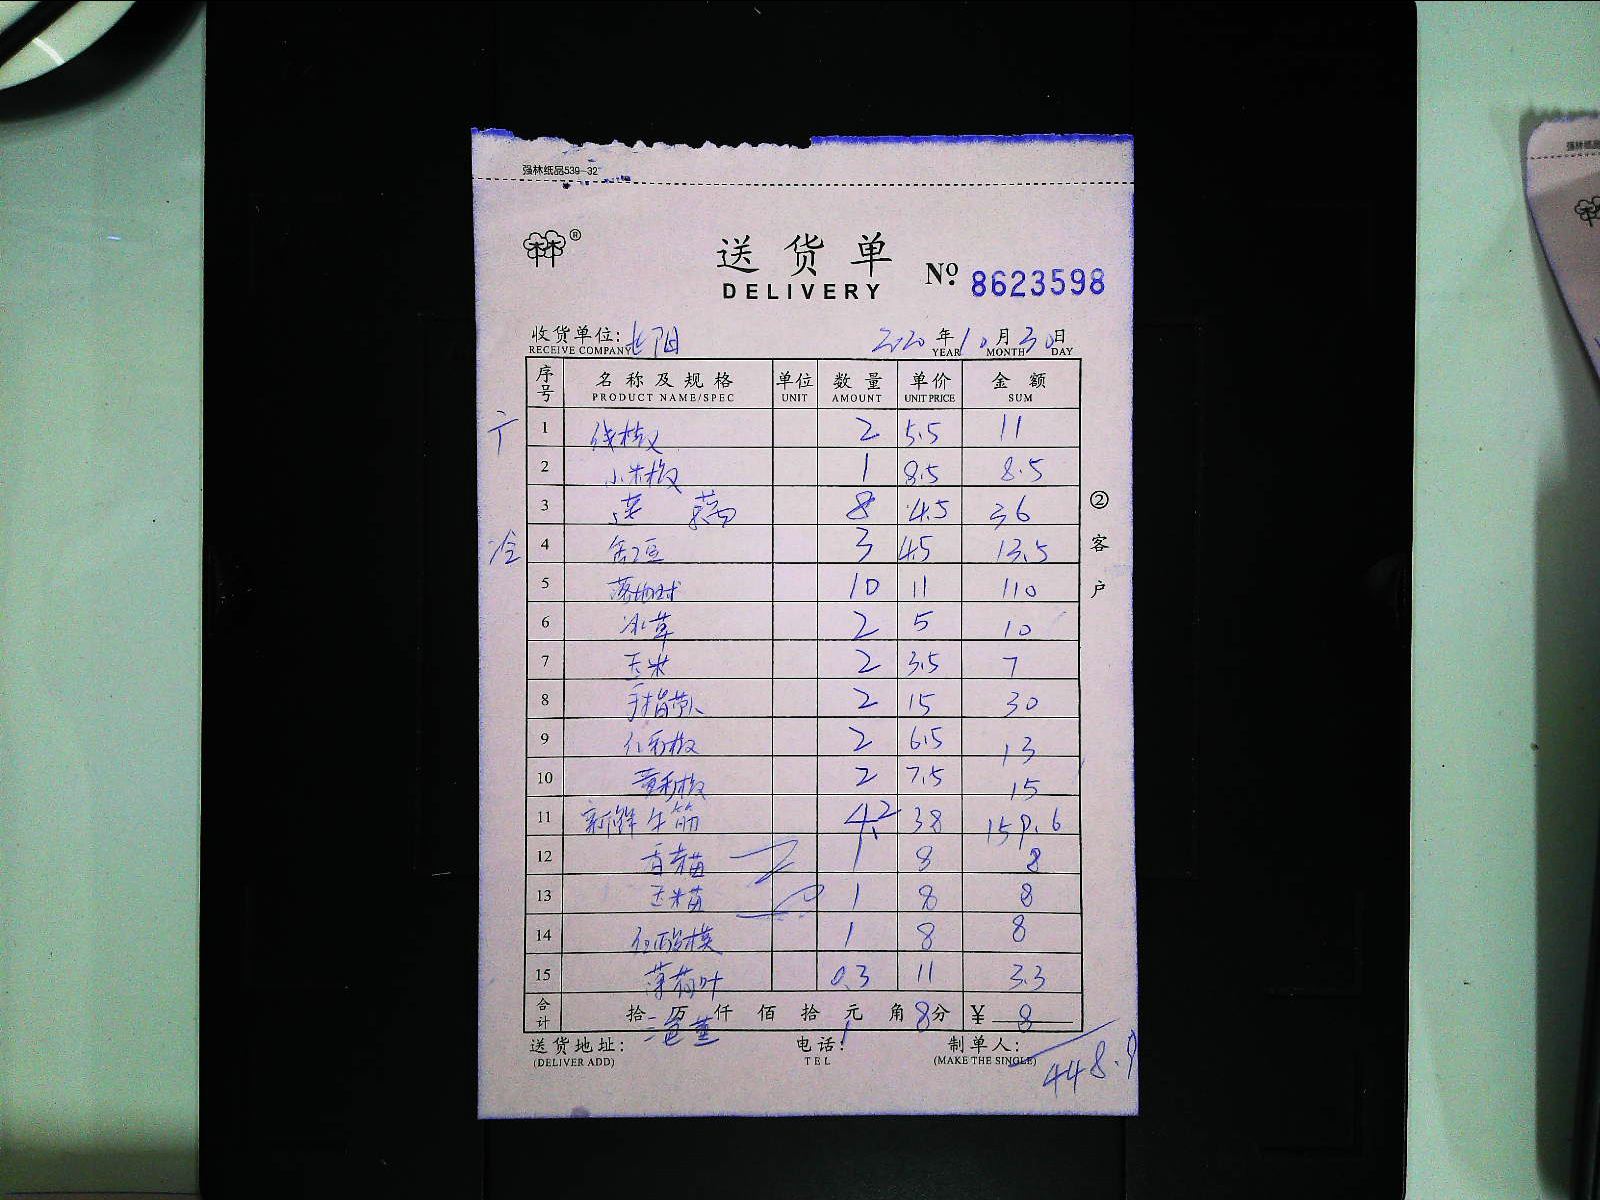 强林纸品539-32
送货单
DELIVERY
№ 8623598
收货单位: 2020年10月30日
RECEIVE COMPANY YEAR MONTH DAY
序号 名称及规格 单位 数量 单价 金额
PRODUCT NAME/SPEC UNIT AMOUNT UNIT PRICE SUM
1 线椒 2 5.5 11
2 小米椒 1 8.5 8.5
3 8 4.5 36
冷 4 豆 3 4.5 13.5
5 10 11 110
6 冰草 2 5 10
7 玉米 2 3.5 7
8 手指 2 15 30
9 红彩椒 2 6.5 13
10 黄彩椒 2 7.5 15
11 新鲜牛筋 4.2 38 159.6
12 苗 1 8 8
13 玉米苗 1 8 8
14 红酸模 1 8 8
15 薄荷叶 0.3 11 3.3
合计 拾 万 仟 佰 拾 元 角 分 ¥
三色堇 1 8 8
送货地址: 电话: 制单人:
(DELIVER ADD) TEL (MAKE THE SINGLE)
448.9
②客户